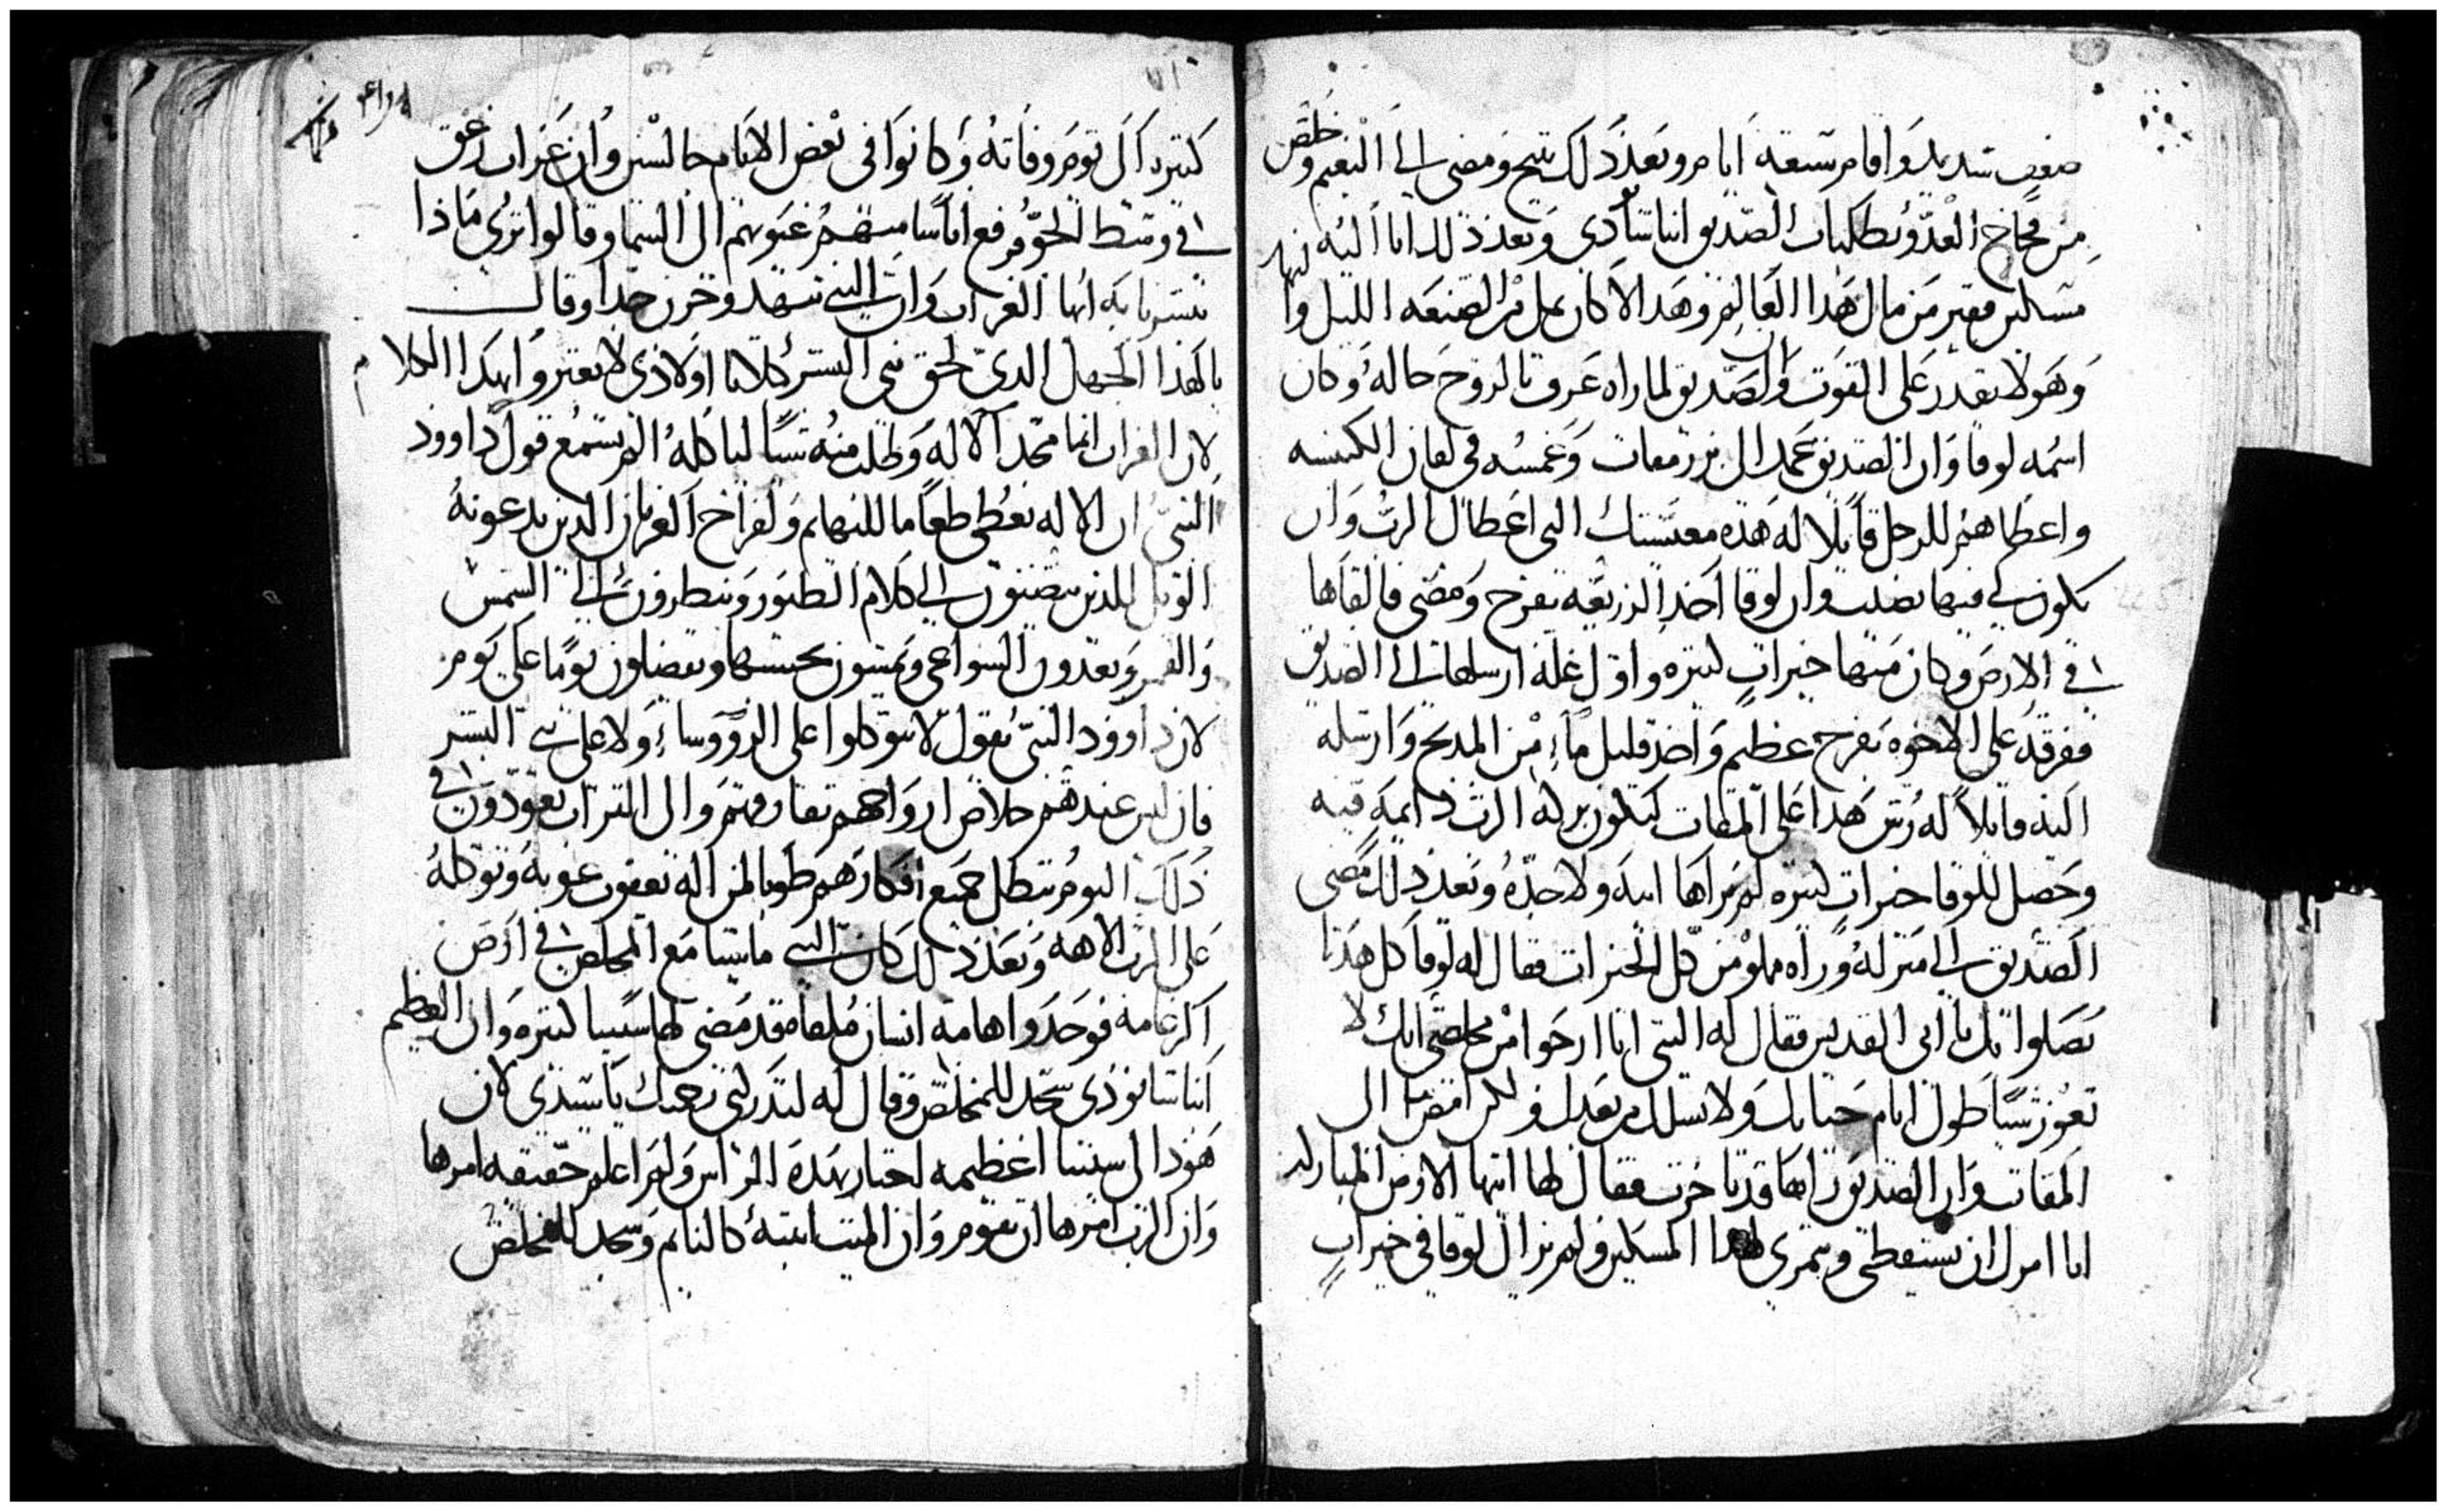 صعب شديد واقام سبعة ايام وبعد ذلك تنيح ومضى الى النعيم وخلص
من فخاخ العدو بطلبات الصديق انبا شنودي وبعد ذلك اتا اليه
مسكين فقير من مال هذا العالم وهدا الاكان يعمل في الصنعه الليل وا
وهو لا يقدر على القوت وان الصديق لما راه عرف بالروح حاله وكان
اسمه لوقا وان الصديق عمد الى بزر مقات وغمسه في لقان الكنيسه
واعطاهم للرجل قايلا له هذه معيشتك التي اعطاك الرب وان
يكون لي فيها نصيب وان لوقا اخد الزريعه بفرح ومضى فالقاها
في الارض وكان منها خيرات كتيره واول غلة ارسلها الى الصديق
ففرقه على الاخوه بفرح عظيم واخد قليل ماء من المدبح وارسله
اليه قايلا له رش هدا على المقات لتكون بركة الرب دايمه فيه
وحصل للوقا خيرات كتيره لم يراها ابيه ولا جده وبعد ذلك مضى
الصديق الى منزله وراه مملو من كل الخيرات فقال له لوقا كل هذا
بصلواتك يا ابي القديس فقال له النبي انا ارجوا من مخلصي انك لا
تعوز شيا طول ايام حياتك ولا نسلك من بعدك ولكن امضي بنا الى
المقات وان الصديق راها قد تاخرت فقال لها ايتها الارض المباركه
انا امرك ان تستيقظي وتثمري لهذا المسكين ولم يزال لوقا في خيرات
كتيره الى يوم وفاته وكانوا في بعض الايام جالسين وان غراب زعق
في وسط الجو فرفع اناسا منهم عيونهم الى السما وقالوا ترى ماذا
تبشرنا به ايها الغراب وان النبي تنهد وحزن جدا وقال
يا لهذا الجهل الدي لحق بني البشر كلا يا اولادي لا تعتبروا بهكدا الكلام
لان الغراب انما مجد الاله وطلب منه شيا لياكله الم تسمع قول داوود
النبي ان الاله يعطي طعاما للبهايم ولفراخ الغربان الدين يدعونه
الويل للدين ينصتون الى كلام الطيور وينظرون الى الشمس
والقمر ويعدون السواعي ويمشون بحسبها ويفضلون يوما على يوم
لان داوود النبي يقول لا تتوكلوا على الرووساء ولا على بني البشر
فان ليس عندهم خلاص ارواحهم تفارقهم والى التراب يعودون في
ذلك اليوم تبطل جميع افكارهم طوبا لمن اله يعقوب عونه وتوكله
على الرب الاهه وبعد ذلك كان النبي ماشيا مع المخلص في ارض
اكرغامه فوجدوا هامة انسان ملقاه قد مضى لها سنينا كتيره وان العظيم
انبا شانودي سجد للمخلص وقال له لتدركني رحمتك يا سيدي لان
هودا لي سنينا عظيمه اجتاز بهذه الراس ولم اعلم حقيقه امرها
وان الرب امرها ان تقوم وان الميت انتبه كالنايم وسجد للمخلص